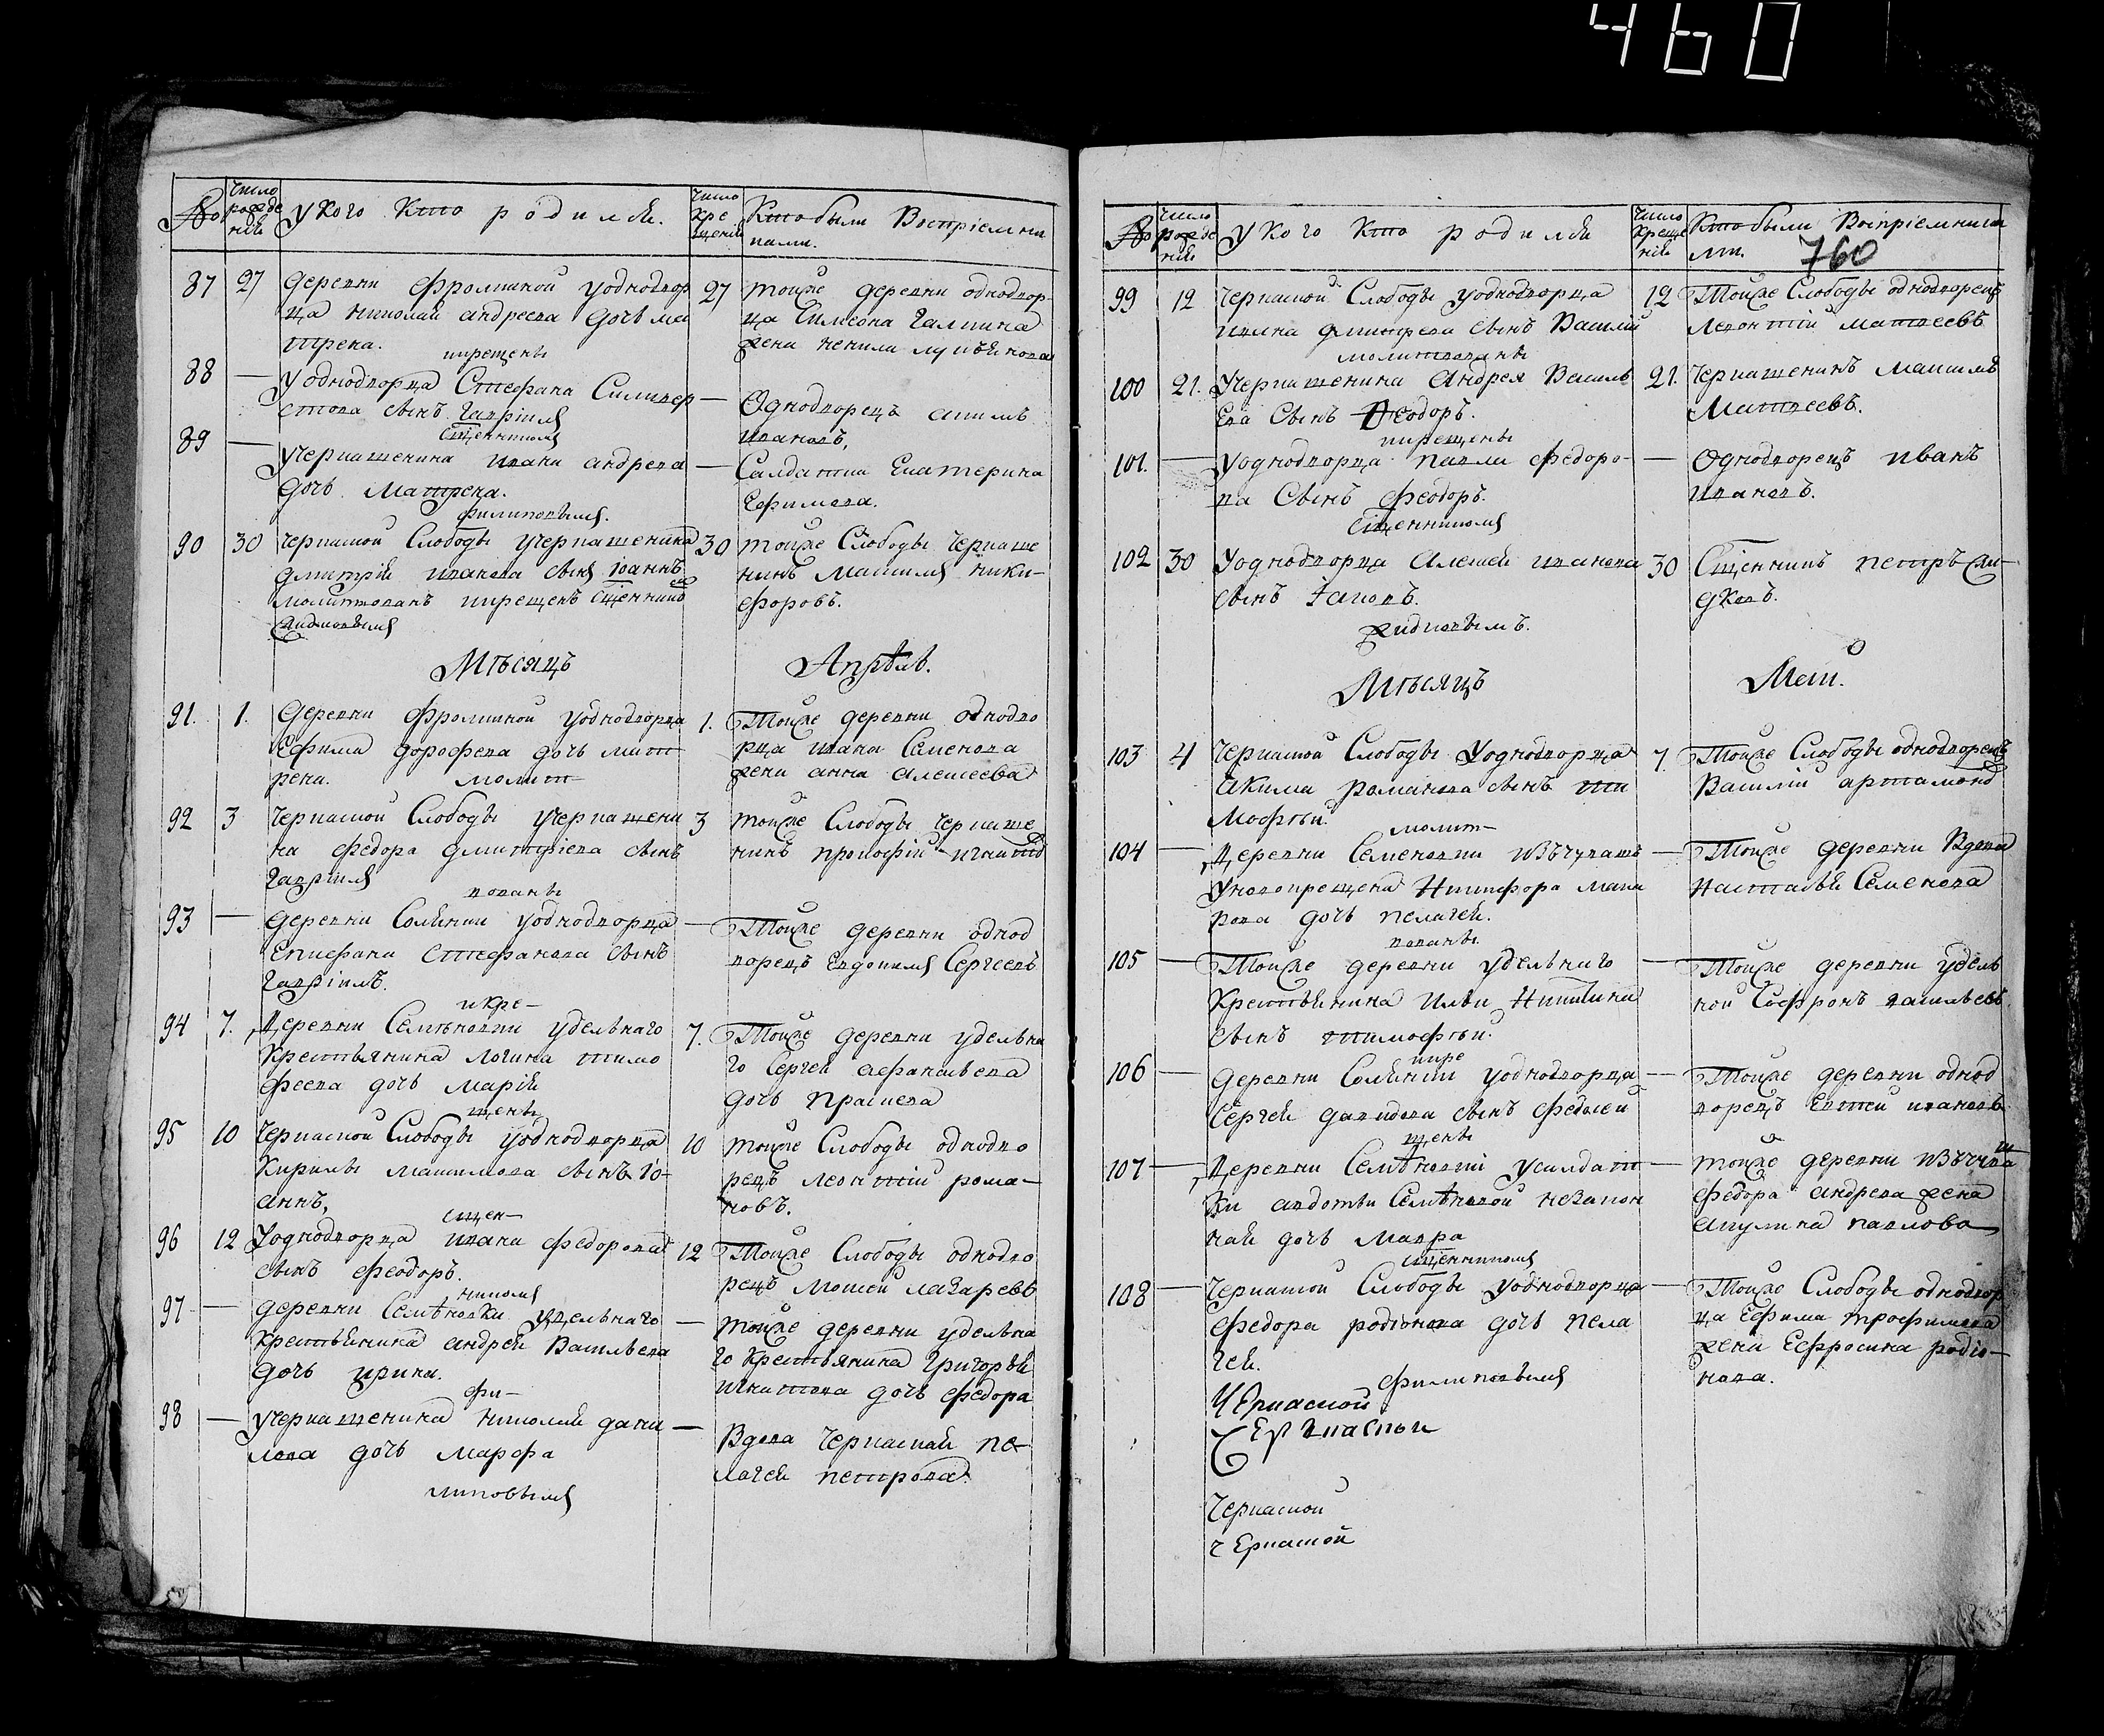 460
№
число рожде нія
У Кого Кто родился.
число кре щенія
Кто были Воспріемни ками.
87 27 деревни Фроминой у однодвор
ца николая андреева дочь ма
трена.
27 тойже деревни однодвор-
ца Симеона Галкина
жена ненила лукьянова
крещены
88 — У однодворца Стефана Силивер
стова сынъ Гавріилъ
— Однодворецъ акимъ
ивановъ,
сщенникомъ
89 — У черкашенина ивана андреева
дочь Матрена.
— Салдатка Екатерина
Ефимова.
филиповымъ.
90 30 Черкаской Слободы у черкашенина
дмитрія иванова сынъ Іоаннъ
молитвованъ и крещенъ сщенникомъ
жидковымъ
30 тойже Слободы черкаше
нинъ Максимъ ники-
форовъ.
Мѣсяцъ Апрѣль.
91. 1. Деревни Фроминой у однодворца
Ефима дорофеева дочь мат
рена.
1. Тойже деревни однодво
рца ивана Семенова
жена анна алексеева
молит
92 3 Черкаской Слободы у черкашени
на федора дмитріева сынъ
Гавріилъ
3 тойже Слободы черкаше
нинъ прокофій игнатов
вованы
93 — деревни Солянки у однодворца
Епифана Стефанова сынъ
Гавріилъ.
— Тойже деревни однод
ворецъ Евдокимъ Сергеевъ
и кре-
94 7. Деревни Семѣновки удельнаго
Крестьянина логина тимо
феева дочь Марія
7. Тойже деревни удельна
го Сергея афанасьева
дочь прасков
щены
95 10 Черкаской Слободы у однодворца
Кирилы максимова сынъ Іо-
аннъ,
10 тойже Слободы однодво
рецъ леонтій рома-
новъ.
сщен-
96 12 У однодворца ивана федорова
сынъ феодоръ.
12 Тойже Слободы однодво
рецъ Мокей лазаревъ
никомъ
97 — деревни Семѣновки удельнаго
Крестьянина андрея Васильева
дочь ирина.
— тойже деревни удельна
го Крестьянина Григорья
игнатова дочь федора
фи-
98 — У черкашенина николая дани
лова дочь марфа
— Вдова Черкаская пе-
лагея петрова.
липовымъ
№
число рожде нія
У Кого Кто родился
число креще нія
Кто были Воспріемника ми.
760
99 12 Черкаской Слободы у однодворца
ивана дмитреева сынъ Василій
12 Тойже Слободы однодворецъ
Левонтій матвеевъ
молитвованы
100 21. У черкашенина Андрея Василь
ева Сынъ Феодоръ.
21. Черкашенинъ Максимъ
Матвеевъ.
и крещены
101. — У однодворца павла федоро-
ва Сынъ феодоръ.
— Однодворецъ иванъ
ивановъ.
сщенникомъ
102 30 У однодворца Алексея иванова
сынъ Іаковъ.
30 Сщенникъ петръ жи-
дковъ.
жидковымъ.
Мѣсяцъ Маій.
103 4 Черкаской Слободы У однодворца
Акима романова сынъ ти
мофѣй.
7. Тойже Слободы однодворецъ
Василій артамонов
молит-
104 — Деревни Семеновки
У новокрещена Никифора мака
рова дочь пелагея.
— Тойже деревни Вдова
Настасья Семенова
вованы
105 — Тойже деревни удельнаго
Крестьянина Ильи Никитина
сынъ тимофѣй.
— Тойже деревни удель
ной Софронъ васильевъ
и кре
106 — деревни Солянки у однодворца
Сергея давидова сынъ федосей
— Тойже деревни однод
ворецъ Евтей ивановъ
щены
107 — Деревни Семѣновки у салдат
ки авдотьи Семѣновой незакон
ная дочь Мавра
— тойже деревни
федора андреева жена
акулина павлова
сщенникомъ
108 — Черкаской Слободы у однодворца
федора родіонова дочь пела
гея.
— Тойже Слободы однодвор
ца Ефима трофимова
жена Ефросинья родіо-
нова.
филиповымъ
Черкаской
Черкаской
Черкаской